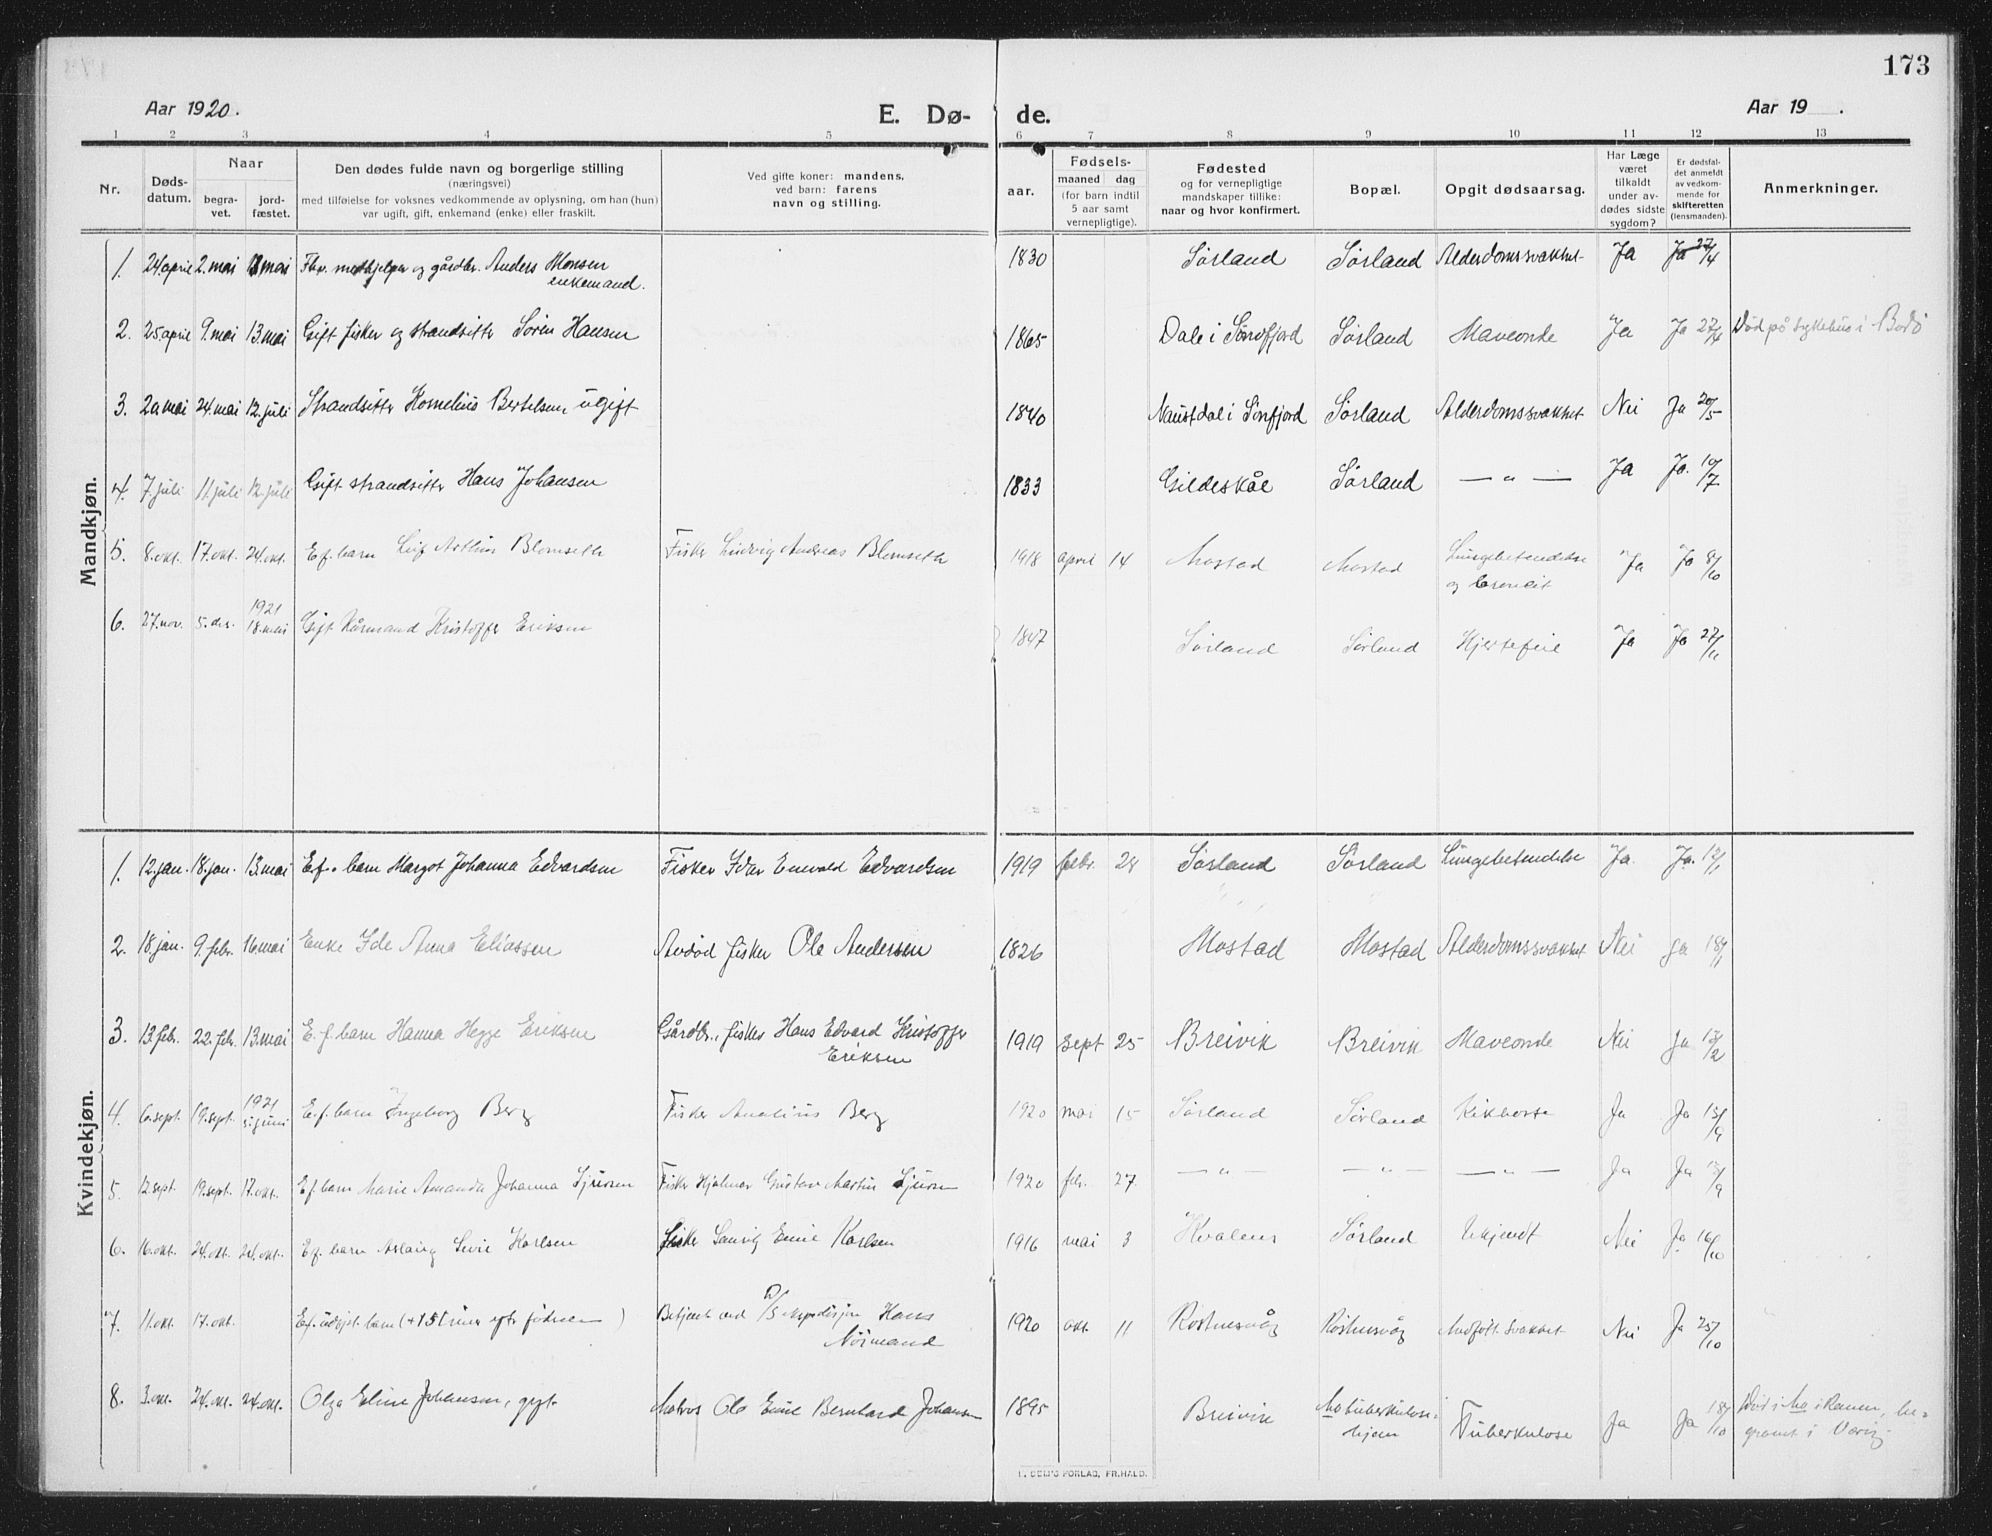 173
Aar 1920.
E. Dø-
de.
Aar 19 .
1 2 3 4 5 6 7 8 9 10 11 12 13
Nr.
Døds-
datum.
Naar
begra-
vet.
jord-
fæstet.
Den dødes fulde navn og borgerlige stilling
(næringsvei)
med tilføielse for voksnes vedkommende av oplysning, om han (hun)
var ugift, gift, enkemand (enke) eller fraskilt.
Ved gifte koner: mandens,
ved barn: farens
navn og stilling.
aar.
Fødsels-
maaned dag
(for barn indtil
5 aar samt
vernepligtige).
Fødested
og for vernepligtige
mandskaper tillike:
naar og hvor konfirmert.
Bopæl.
Opgit dødsaarsag.
Har Læge
været
tilkaldt
under av-
dødes sidste
sygdom?
Er dødsfal-
det anmeldt
av vedkom-
mende for
skifteretten
(lensmanden).
Anmerkninger.
Mandkjøn.
1. 24 april 2. mai mai Fhv. medhjelper og gårdbr. Anders Monsen 1830 Sørland Sørland Alderdomssvakhet Ja Ja 27/4
enkemand.
2. 25 april 9. mai 13. mai Gift fisker og strandsitter Søren Hansen 1865 Dale i Søndfjord Sørland Maveonde Ja Ja 27/4 Død på sykehus i Bodø
3. 20 mai 24 mai 12. juli Strandsitter Kornelius Bertelsen ugift 1840 Naustdal i Sønfjord Sørland Alderdomssvakhet Nei Ja 20/5
4. 7 juli 11. juli 12. juli Gift strandsitter Hans Johansen 1833 Gildeskål Sørland — " — Ja Ja. 10/7
5. 8. okt. 17. okt. 24. okt. E. f. barn Leif Arthur Blomseth Fisker Ludvig Andreas Blomseth 1918 april 14 Mostad Mostad Lungebetendelse Ja Ja 8/10
og
6. 27. nov. 5. des. 1921 18. mai Gift Kårmand Kristoffer Eriksen 1847 Sørland Sørland Hjertefeil Ja Ja 27/11
Kvindekjøn.
1. 12. jan. 18. jan. 13. mai E. f. barn Margot Johanna Edvardsen Fisker Idar Enevald Edvardsen 1919 febr. 28 Sørland Sørland Lungebetendelse Ja. Ja. 12/1
2. 18 jan. 9. febr. 16. mai Enke Ide Anna Eliassen Avdød fisker Ole Andersen 1826 Mostad Mostad Alderdomssvakhet Nei Ja 18/1
3. 13. febr. 22. febr. 13. mai E. f. barn Hanna Hegge Eriksen Gårdbr., fisker Hans Edvard Kristoffer 1919 sept 25 Breivik Breivik Maveonde Nei Ja 13/2
Eriksen
4. 6. sept. 19. sept. 1921 5. juni E. f. barn Ingeborg Berg Fisker Analius Berg 1920 mai 15 Sørland Sørland Kikhoste Ja Ja 13/9
5. 12. sept. 19. sept. 17. okt. E. f. barn Marie Amanda Johanna Sjursen Fisker Hjalmar Gustav Martin Sjursen 1920 febr. 27 — " — — " — — " — Ja Ja 13/9
6. 16. okt. 24. okt. 24. okt. E. f. barn Aslaug Sevie Karlsen fisker Emil Karlsen 1916 mai 3 Sørland Ukjendt Nei Ja 16/10
7. 11. okt. 17. okt. E. f. udøpt barn (+ 15 timer efter fødselen) Betjent ved A/S Hans 1920 okt. 11 Røstnesvåg Røstnesvåg Medfødt svakhet Nei Ja 25/10
Normand
8. 3. okt. 24. okt. 24. okt. Olga Eline Johansen, gift. Matros Ole Emil Bernhard Johansen 1895 Breivik Mo tuberkulose- Tuberkulose Ja Ja 18/10 Død i Mo i Ranen, be-
hjem gravet i Værøy